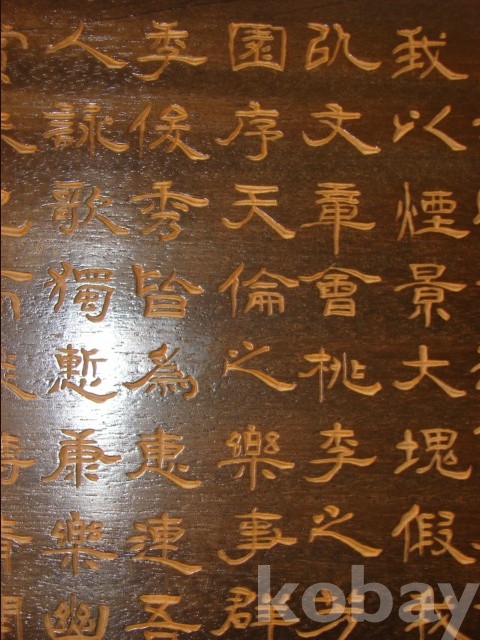 我以煙景大塊假我
以文章會桃李之芳
園序天倫之樂事群
季俊秀皆為惠連吾
人詠歌獨慙康樂幽
kobay